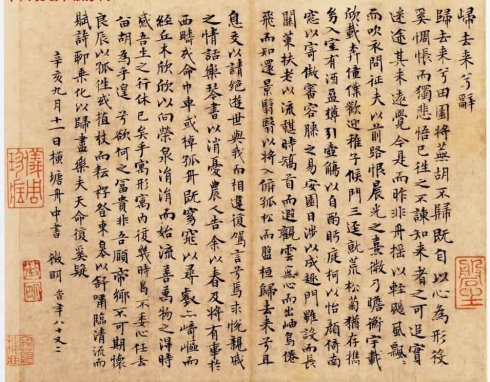 歸去來兮辭
歸去來兮田園將蕪胡不歸既自以心為形役
奚惆悵而獨悲悟已往之不諫知來者之可追實
迷途其未遠覺今是而昨非舟搖以輕颺風飄飄
而吹衣問征夫以前路恨晨光之熹微乃瞻衡宇載
欣載奔僮僕歡迎稚子候門三逕就荒松菊猶存攜
幼入室有酒盈樽引壺觴以自酌眄庭柯以怡顏倚南
窓以寄傲審容膝之易安園日涉以成趣門雖設而長
關策扶老以流憩時矯首而遐觀雲無心而出岫鳥倦
飛而知還景翳翳以將入撫孤松而盤桓歸去來兮且
息交以請絕遊世與我而相遺復駕言兮焉求悅親戚
之情話樂琴書以消憂農人告余以春及將有事於
西疇或命巾車或棹孤舟既窈窕以尋壑亦崎嶇而
經丘木欣欣以向榮泉涓涓而始流善萬物之得時
感吾生之行休已矣乎寓形宇內復幾時曷不委心任去
留胡為乎遑兮欲何之富貴非吾願帝鄉不可期懷
良辰以孤往或植杖而耘耔登東皋以舒嘯臨清流而
賦詩聊乘化以歸盡樂夫天命復奚疑
辛亥九月十一日橫塘舟中書 徵明 時年八十又二